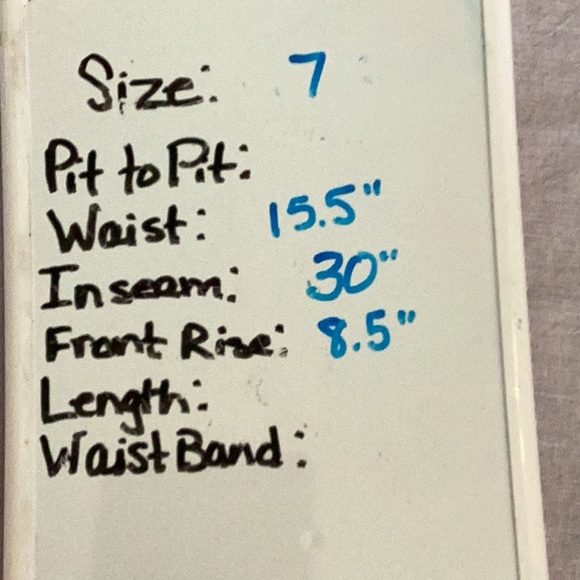 Size: 7
Pit to Pit:
Waist: 15.5"
Inseam: 30"
Front Rise: 8.5"
Length:
Waist Band: